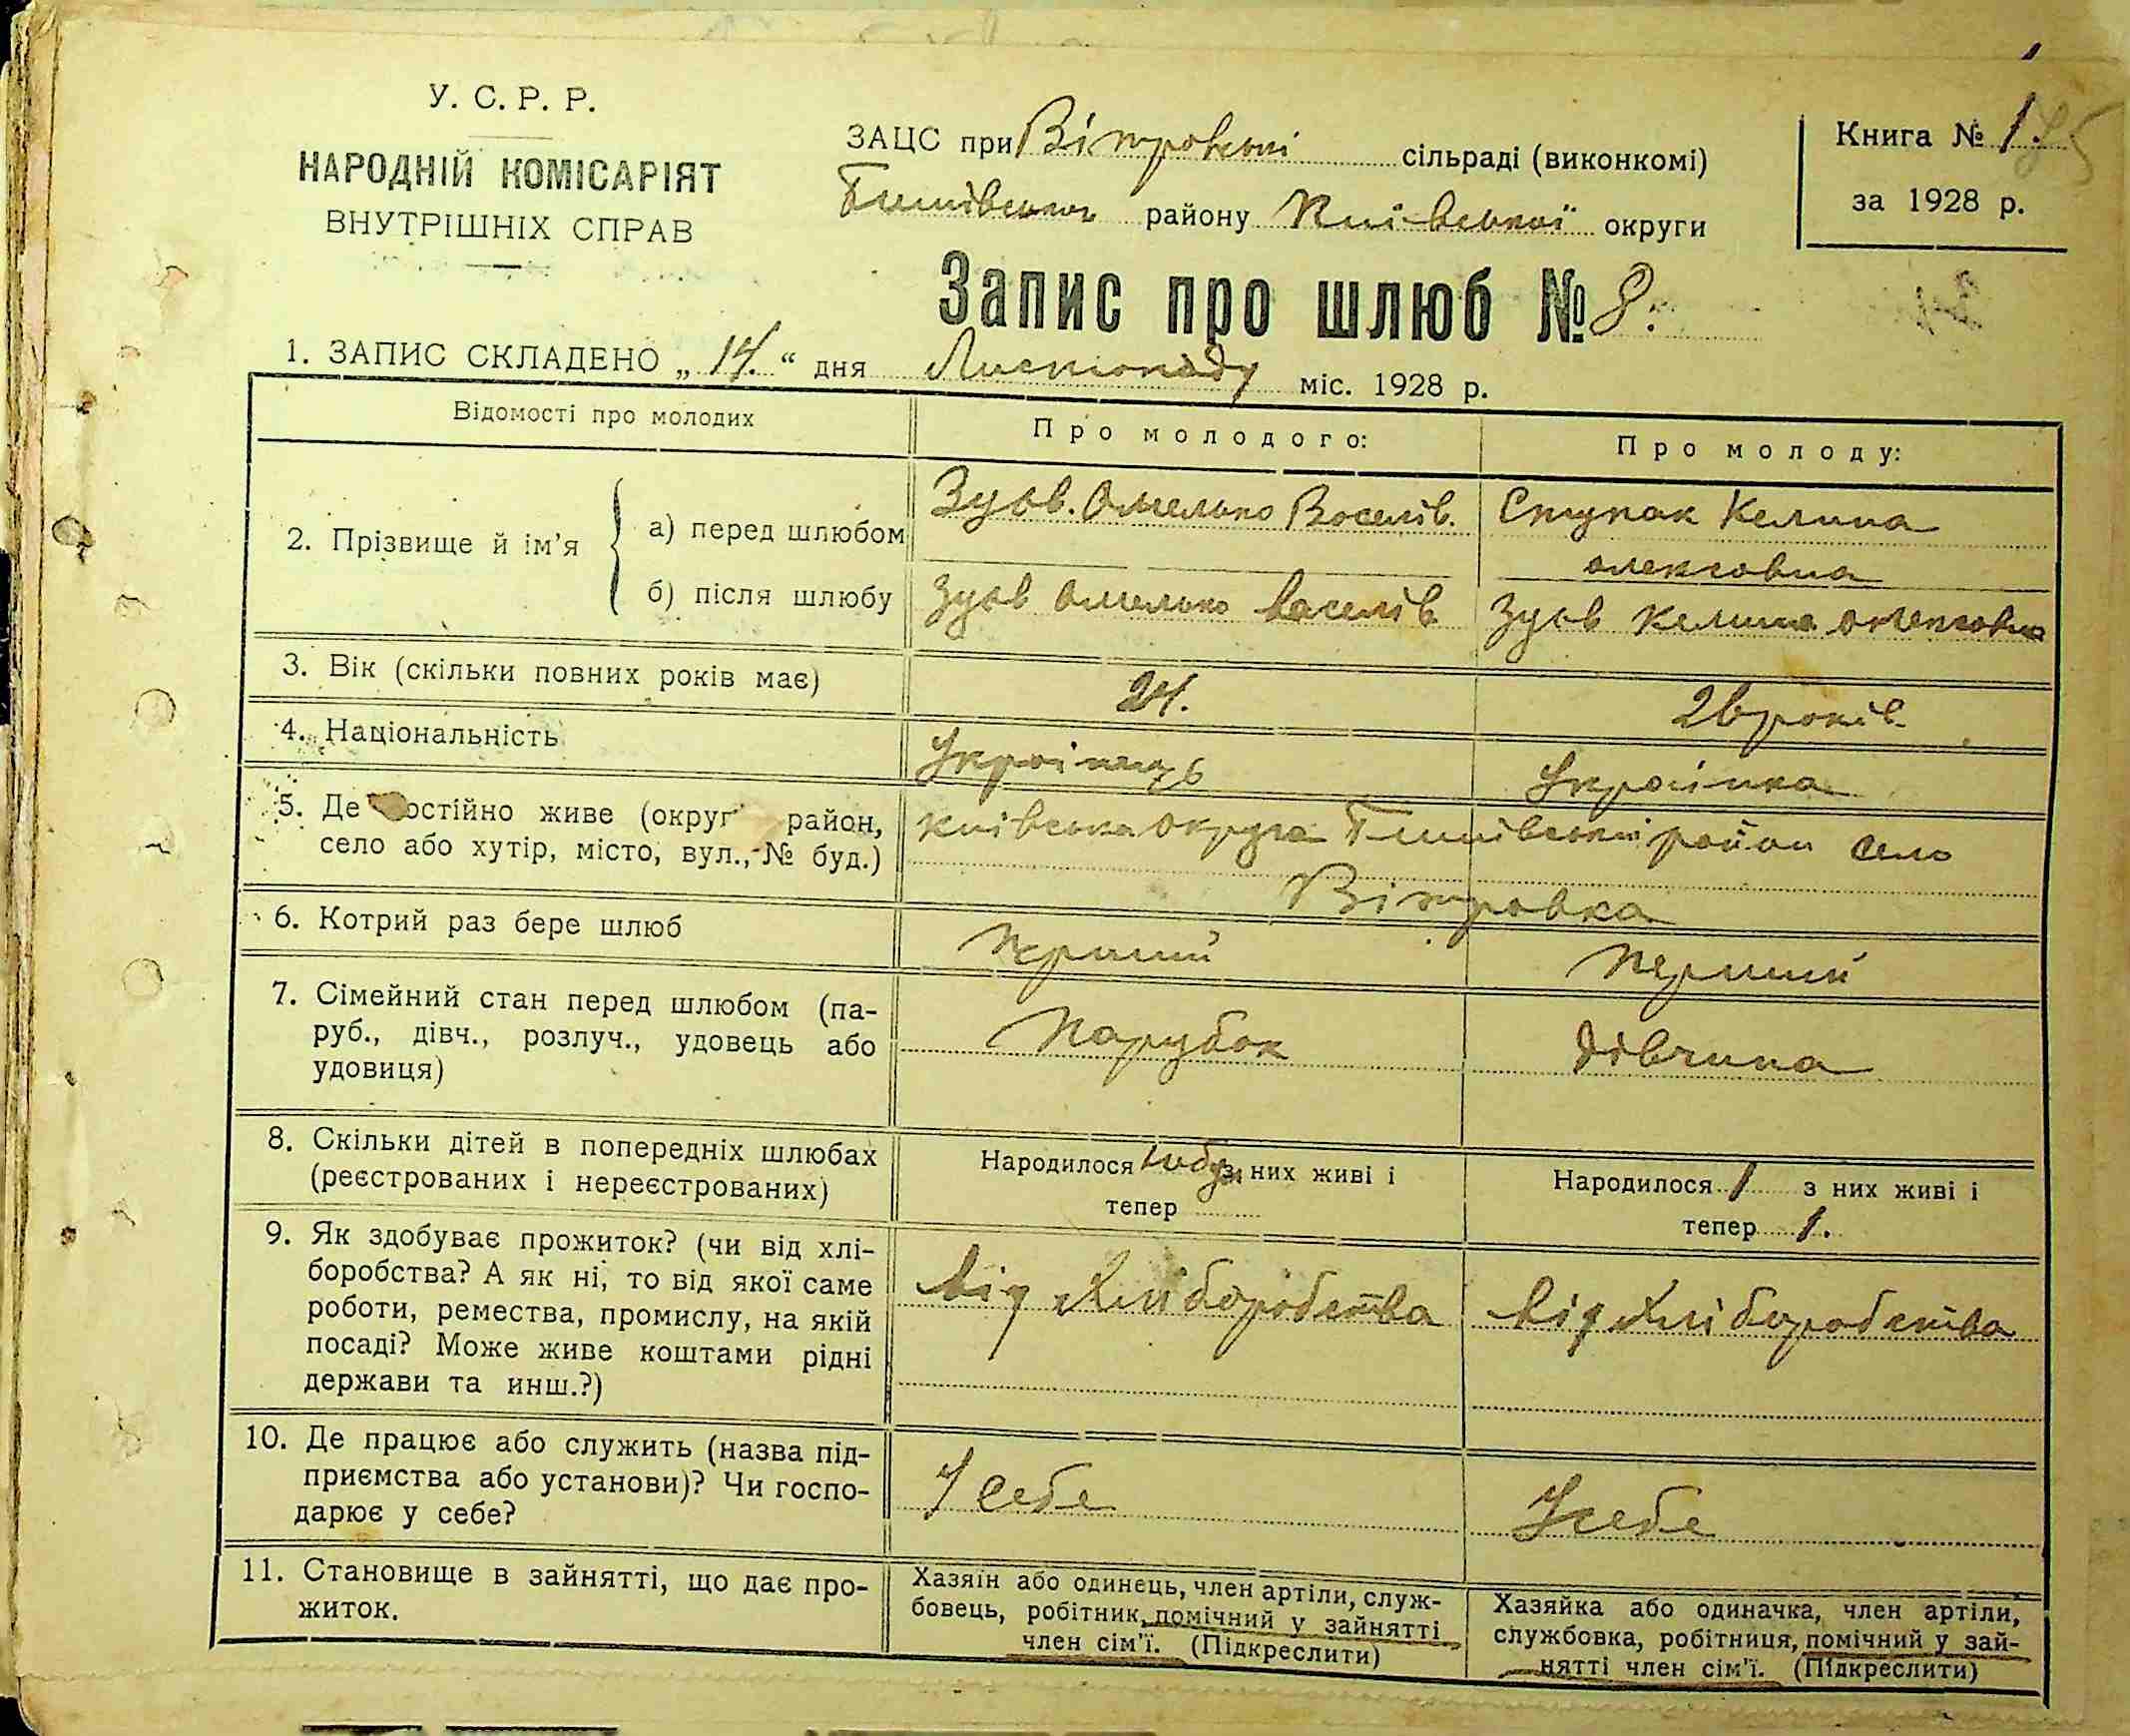 У. С. Р. Р.
НАРОДНІЙ КОМІСАРІЯТ
ВНУТРІШНІХ СПРАВ
ЗАЦС при Вітровські сільраді (виконкомі)
району Київської округи
Книга № 1
за 1928 р.
Запис про шлюб № 8.
1. ЗАПИС СКЛАДЕНО „14.“ дня Листопаду міс. 1928 р.
Відомості про молодих
Про молодого:
Про молоду:
2. Прізвище й ім'я
а) перед шлюбом
Зуєв. Омелько Васелів.
Ступак Келина
олексовна
б) після шлюбу
Зуєв Омелько Васелів
Зуєв Келина олексовна
3. Вік (скільки повних років має)
24.
26 років
4. Національність
Українець
Українка
5. Де постійно живе (округ район,
село або хутір, місто, вул., № буд.)
Київська округа район село
Вітровка
6. Котрий раз бере шлюб
Перший
Перший
7. Сімейний стан перед шлюбом (па-
руб., дівч., розлуч., удовець або
удовиця)
Парубок
Дівчина
8. Скільки дітей в попередніх шлюбах
(реєстрованих і нереєстрованих)
Народилося з них живі і
тепер
Народилося 1 з них живі і
тепер 1.
9. Як здобуває прожиток? (чи від хлі-
боробства? А як ні, то від якої саме
роботи, ремества, промислу, на якій
посаді? Може живе коштами рідні
держави та инш.?)
Від Хліборобства
Від Хліборобства
10. Де працює або служить (назва під-
приємства або установи)? Чи госпо-
дарює у себе?
У себе
У себе
11. Становище в зайнятті, що дає про-
житок.
Хазяїн або одинець, член артіли, служ-
бовець, робітник, помічний у зайнятті
член сім'ї. (Підкреслити)
Хазяйка або одиначка, член артіли,
службовка, робітниця, помічний у зай-
нятті член сім'ї. (Підкреслити)